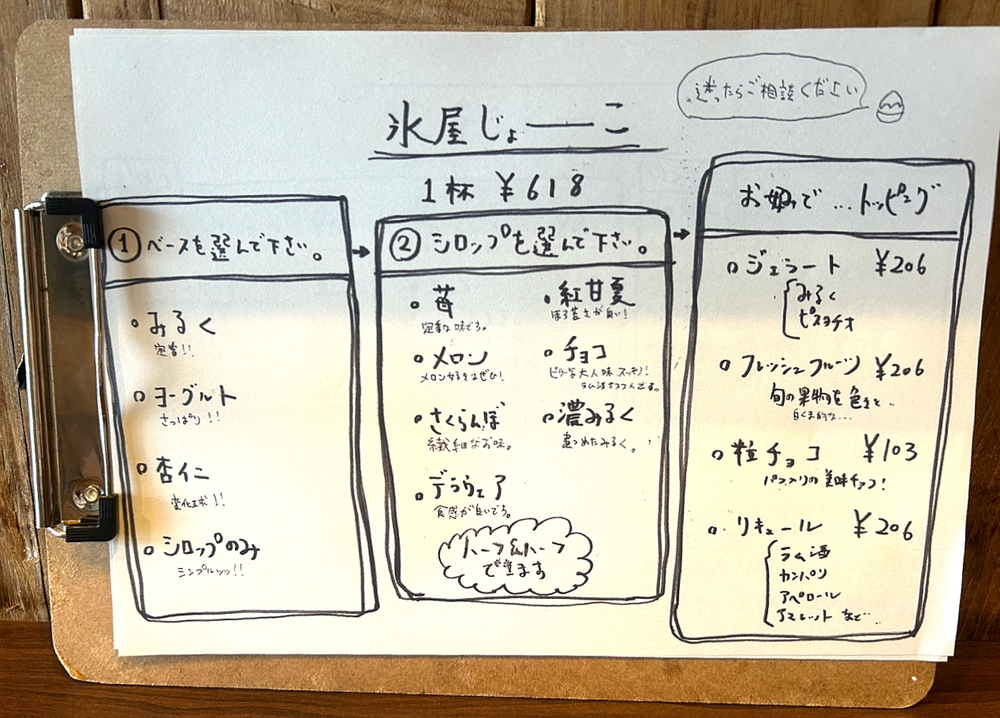 迷ったらご相談ください
氷屋じょーーこ
1杯 ¥618
① ベースを選んで下さい。
・みるく
定番!!
・ヨーグルト
さっぱり!!
・杏仁
変化球!!
・シロップのみ
シンプルッッ!!
② シロップを選んで下さい。
・苺
定番な味です。
・メロン
メロン好きはぜひ!
・さくらんぼ
繊細なお味。
・デラウェア
食感が良いです。
・紅甘夏
ほろ苦さが良い!
・チョコ
ビターな大人味 スッキリ!
ラム酒オススメです。
・濃みるく
煮つめたみるく。
ハーフ&ハーフ
できます
お好みで…トッピング
・ジェラート ¥206
みるく
ピスタチオ
・フレッシュフルーツ ¥206
旬の果物を色々と..
白くま的な...
・粒チョコ ¥103
パフ入りの美味チョコ!
・リキュール ¥206
ラム酒
カンパリ
アペロール
アマレット など…